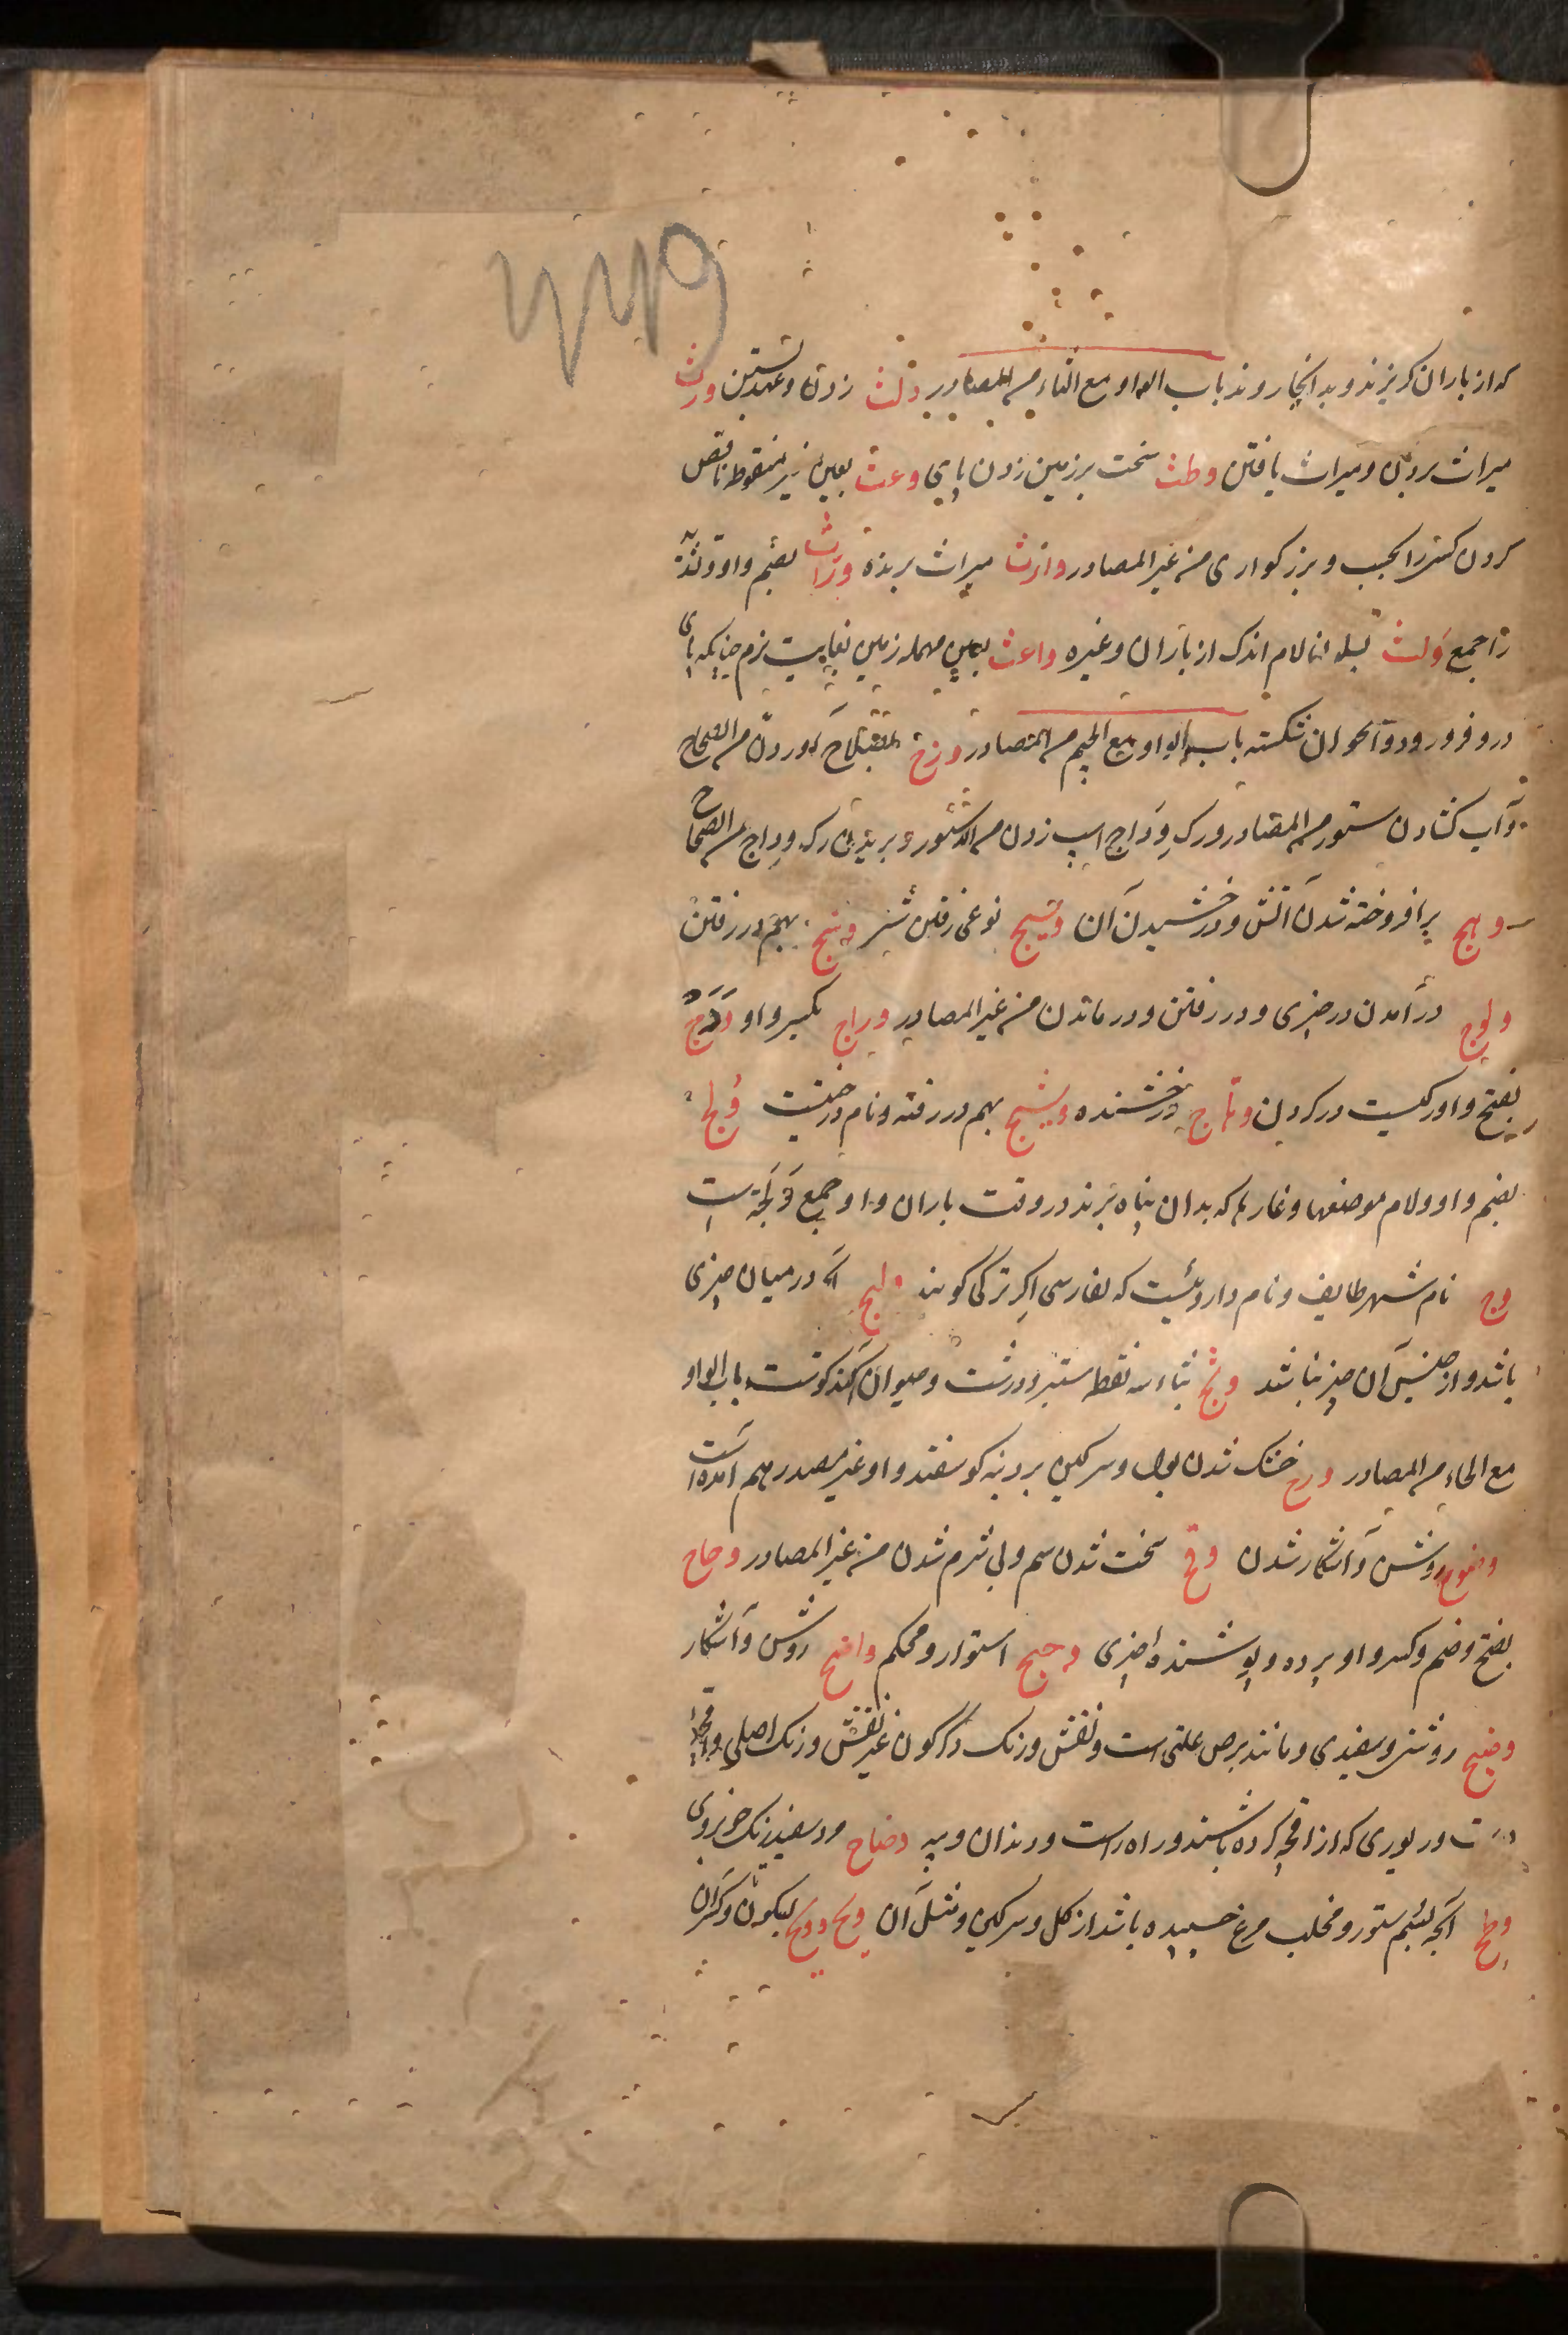 که از باران گریزند و بد آنجا روند باب الواو مع الثاء من المصادر ولث زدن و عهد بستن ورث
میراث بردن و میراث یافتن وطث سخت بر زمین زدن پای وعث بعین غیر منقوط ناقص
کردن کسی را بحسب و بزرکواری من غیر المصادر وارث میراث برنده وراث بضم واو و تشدید
را جمع ولث لام اندک از باران و غیره واعث بعین مهمله زمین بغایت نرم چنانکه پای
درو فرو رود و استخوان شکسته باب الواو مع الجیم من المصادر من الصحاح
و آب کشادن ستور من المصادر و رک وداج اسپ زدن من الدستور و بریدن رک وداج من الصحاح
وهج برافروخته شدن آتش و درخشیدن آن وسیج نوعی رفتن شتر وشج بهم در رفتن
ولوج در آمدن در چیزی و در رفتن و در ماندن من غیر المصادر وداج بکسر واو ودج
بفتح واو رکیست در کردن وهاج درخشنده وشیج بهم در رفته و نام درختیست ولج
بضم واو و لام موضعها و غارها که بدان پناه برند در وقت باران و او جمع ولجة است
وج نام شهر طایف و نام داروئیست که بفارسی اکر ترکی کویند ولیج آنکه در میان چیزی
باشد و از جنس آن چیز نباشد وثج بثاء سه نقطه ستبر و درشت و حیوان آکنده کوشت باب الواو
مع الحاء من المصادر وذح خشک شدن بول و سرکین بر دنبه کوسفند و او غیر مصدر هم آمده است
وضوح روشن و آشکار شدن وقح سخت شدن سم و بی شرم شدن من غیر المصادر وجاح
بفتح و ضم و کسر واو پرده و پوشنده چیزی وجیح استوار و محکم واضح روشن و آشکار
وضح روشنی و سفیدی و مانند برص علتی است و نقش و رنک دکرکون غیر نقش و رنک اصلی و اقچه
درست و زیوری که از اقچه کرده باشند و راه راست و دندان و پیه وضاح مرد سفید رنک خوبروی
وطح آنچه بسم ستور و مخلب مرغ چسپیده باشد از کل و سرکین و مثل آن وتح ووتح بسکون و کسر آن